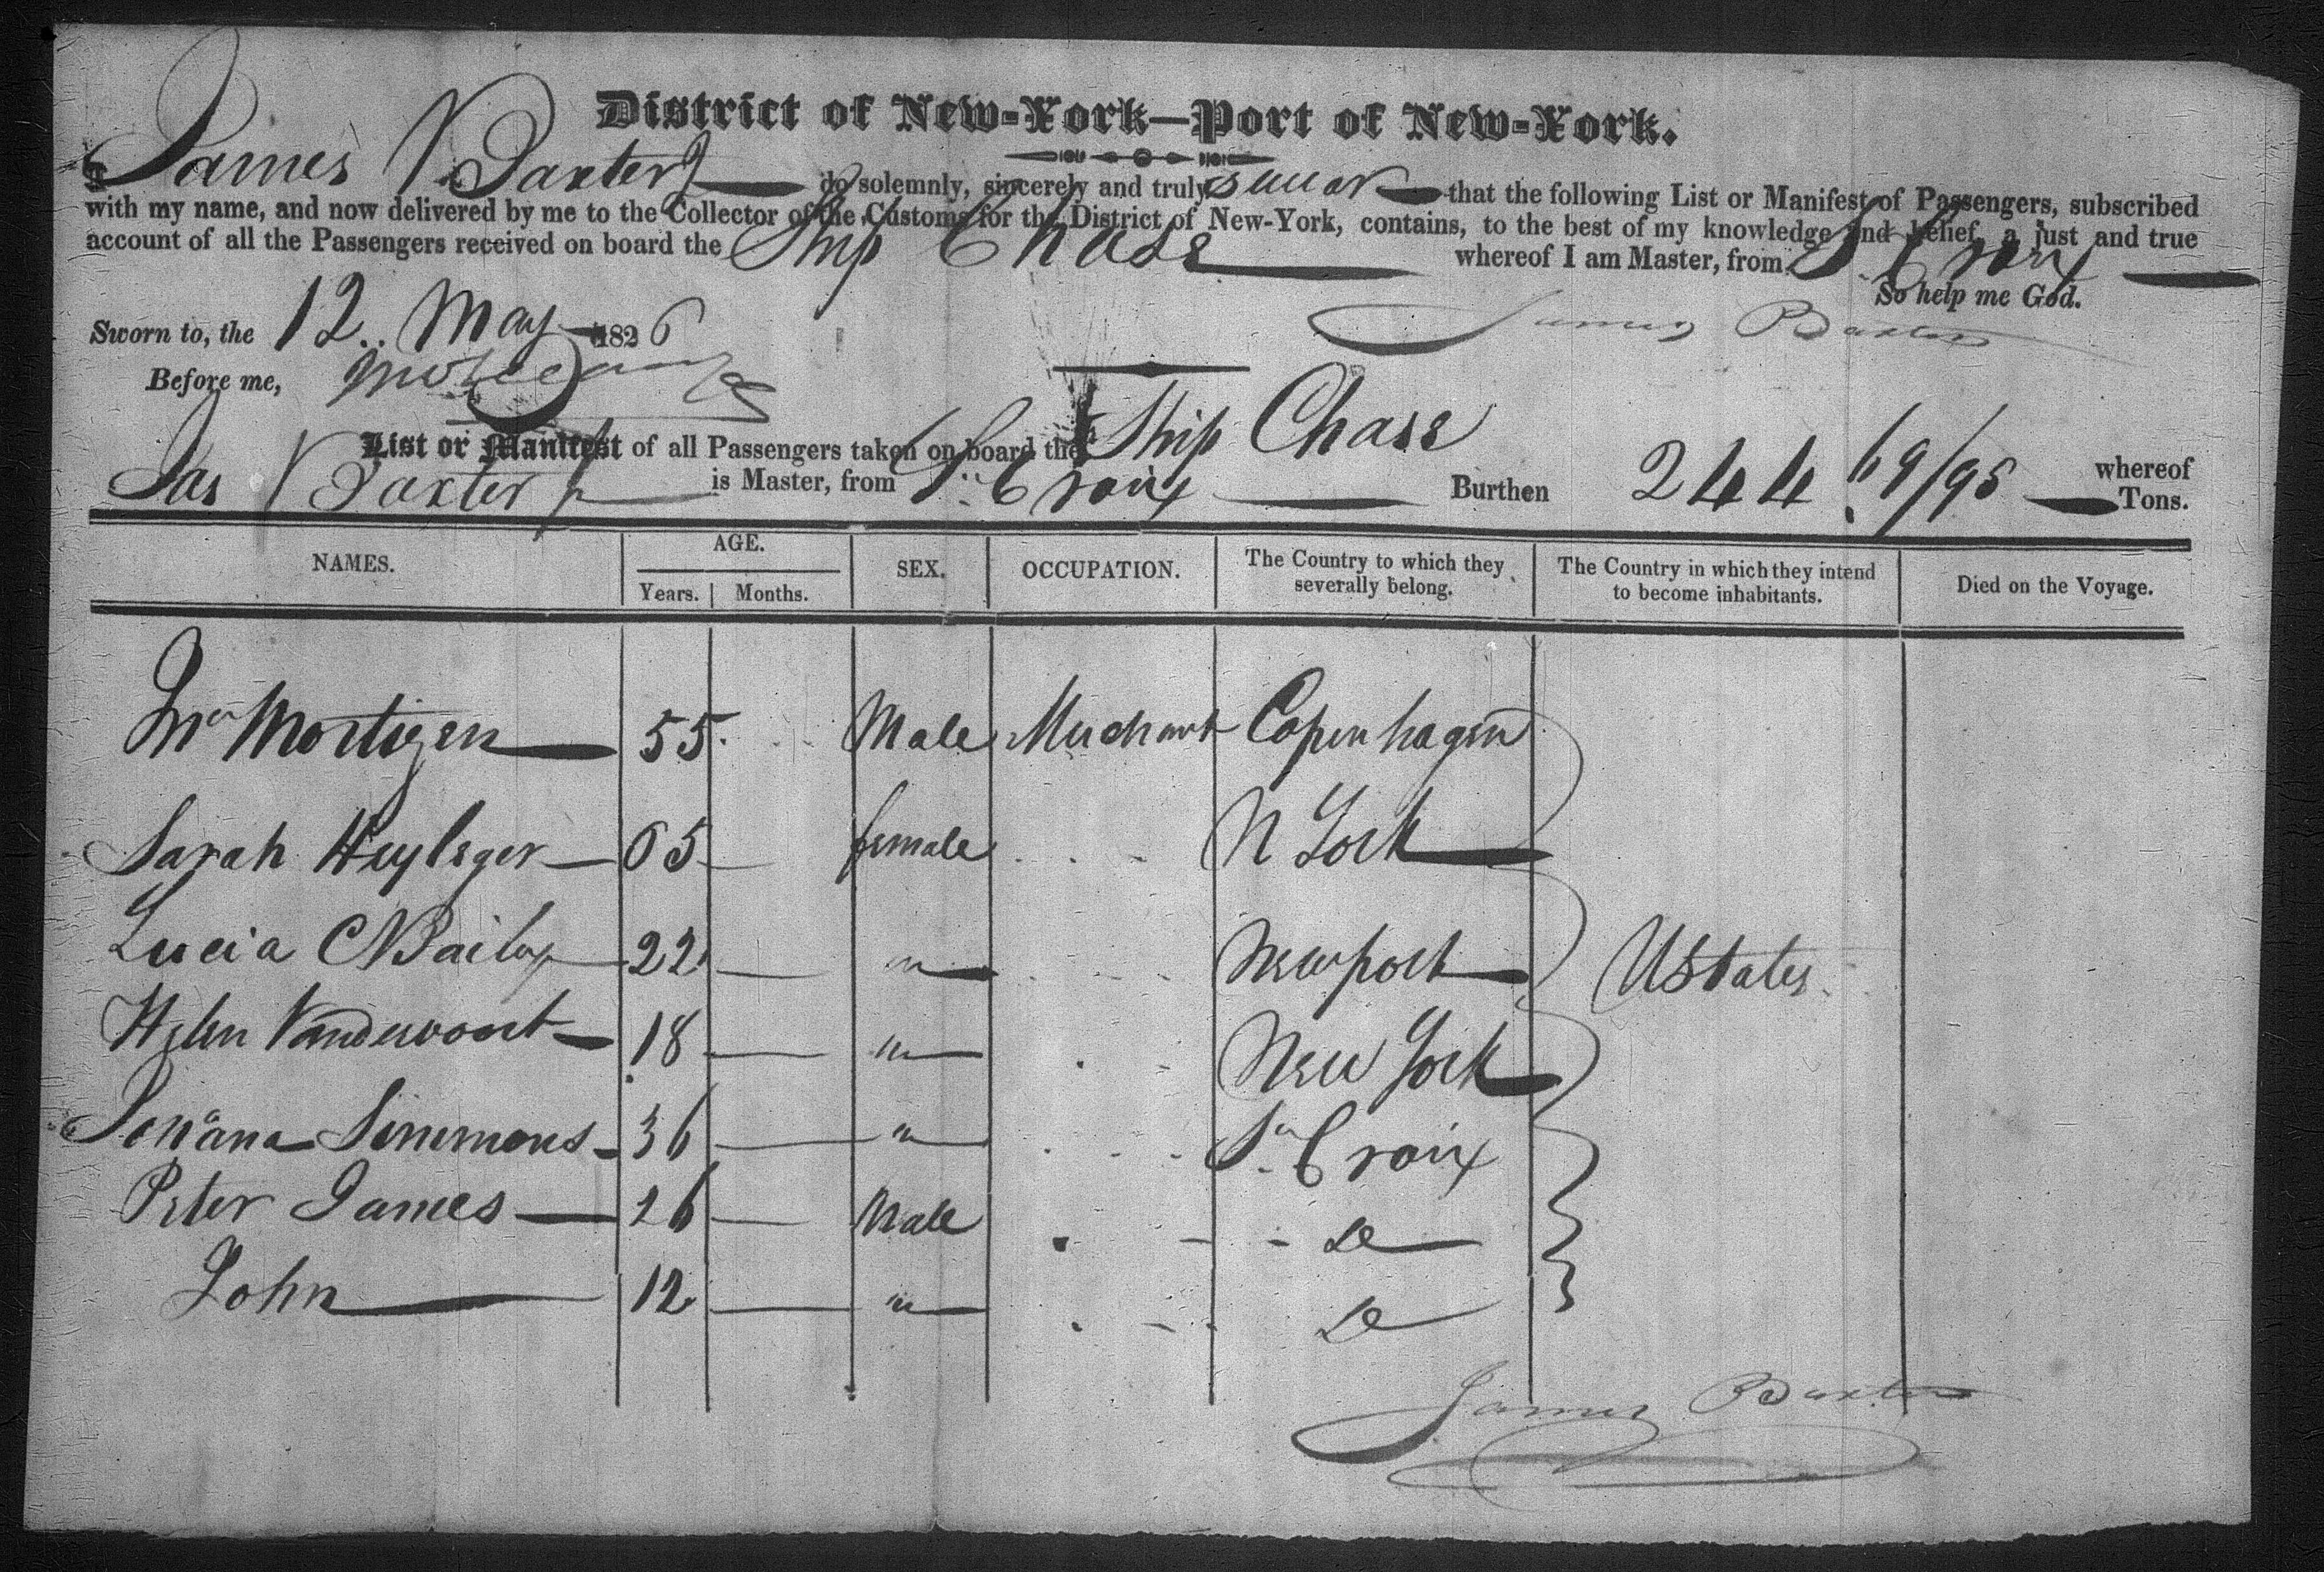 District of New-York—Port of New-York.
I James Baxter do solemnly, sincerely and truly swear that the following List or Manifest of Passengers, subscribed
with my name, and now delivered by me to the Collector of the Customs for the District of New-York, contains, to the best of my knowledge and belief, a just and true
account of all the Passengers received on board the Ship Chase whereof I am Master, from St. Croix
So help me God.
Sworn to, the 12 May 1826
James Baxter
Before me,
List or Manifest of all Passengers taken on board the Ship Chase whereof
Jas Baxter is Master, from St. Croix Burthen 244 69/95 Tons.
NAMES. AGE. SEX. OCCUPATION. The Country to which they severally belong. The Country in which they intend to become inhabitants. Died on the Voyage.
Years. Months.
Mr Mortizen 55 Male Merchant Copenhagen
Sarah Heyleger 65 female N York
Lucia C Baily 22 " Newport U States
Helen Vandervoort 18 " New York
Simmons 36 " St. Croix
Peter James 26 Male Do
John 12 " Do
James Baxter